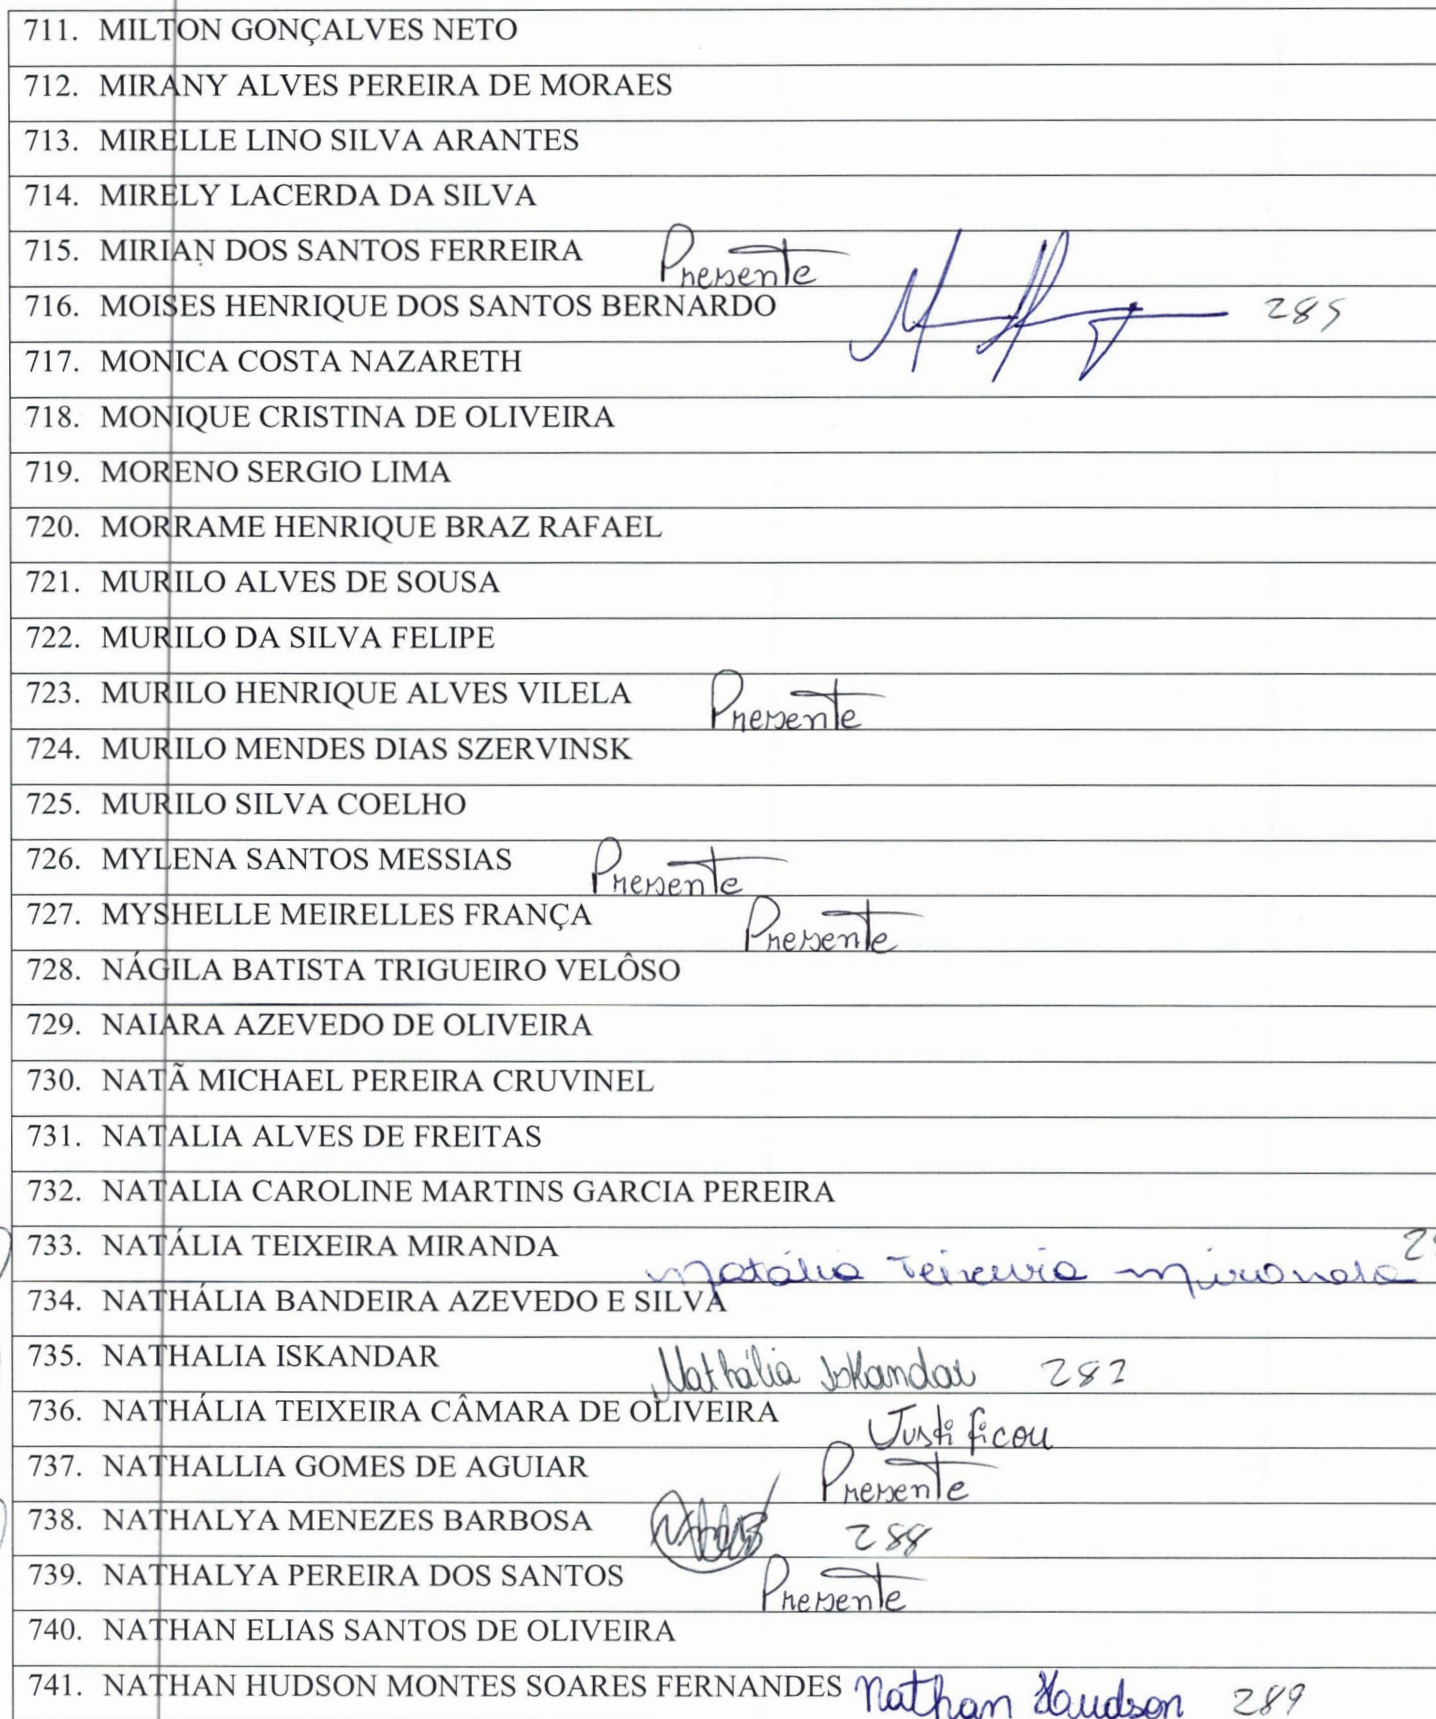 711. MILTON GONÇALVES NETO
712. MIRANY ALVES PEREIRA DE MORAES
713. MIRELLE LINO SILVA ARANTES
714. MIRELY LACERDA DA SILVA
715. MIRIAN DOS SANTOS FERREIRA Presente
716. MOISES HENRIQUE DOS SANTOS BERNARDO 285
717. MONICA COSTA NAZARETH
718. MONIQUE CRISTINA DE OLIVEIRA
719. MORENO SERGIO LIMA
720. MORRAME HENRIQUE BRAZ RAFAEL
721. MURILO ALVES DE SOUSA
722. MURILO DA SILVA FELIPE
723. MURILO HENRIQUE ALVES VILELA Presente
724. MURILO MENDES DIAS SZERVINSK
725. MURILO SILVA COELHO
726. MYLENA SANTOS MESSIAS Presente
727. MYSHELLE MEIRELLES FRANÇA Presente
728. NÁGILA BATISTA TRIGUEIRO VELÔSO
729. NAIARA AZEVEDO DE OLIVEIRA
730. NATÃ MICHAEL PEREIRA CRUVINEL
731. NATALIA ALVES DE FREITAS
732. NATALIA CAROLINE MARTINS GARCIA PEREIRA
733. NATÁLIA TEIXEIRA MIRANDA Natália Teixeira Miranda
734. NATHÁLIA BANDEIRA AZEVEDO E SILVA
735. NATHALIA ISKANDAR Nathália Iskandar 287
736. NATHÁLIA TEIXEIRA CÂMARA DE OLIVEIRA Justificou
737. NATHALLIA GOMES DE AGUIAR Presente
738. NATHALYA MENEZES BARBOSA 288
739. NATHALYA PEREIRA DOS SANTOS Presente
740. NATHAN ELIAS SANTOS DE OLIVEIRA
741. NATHAN HUDSON MONTES SOARES FERNANDES Nathan Hudson 289